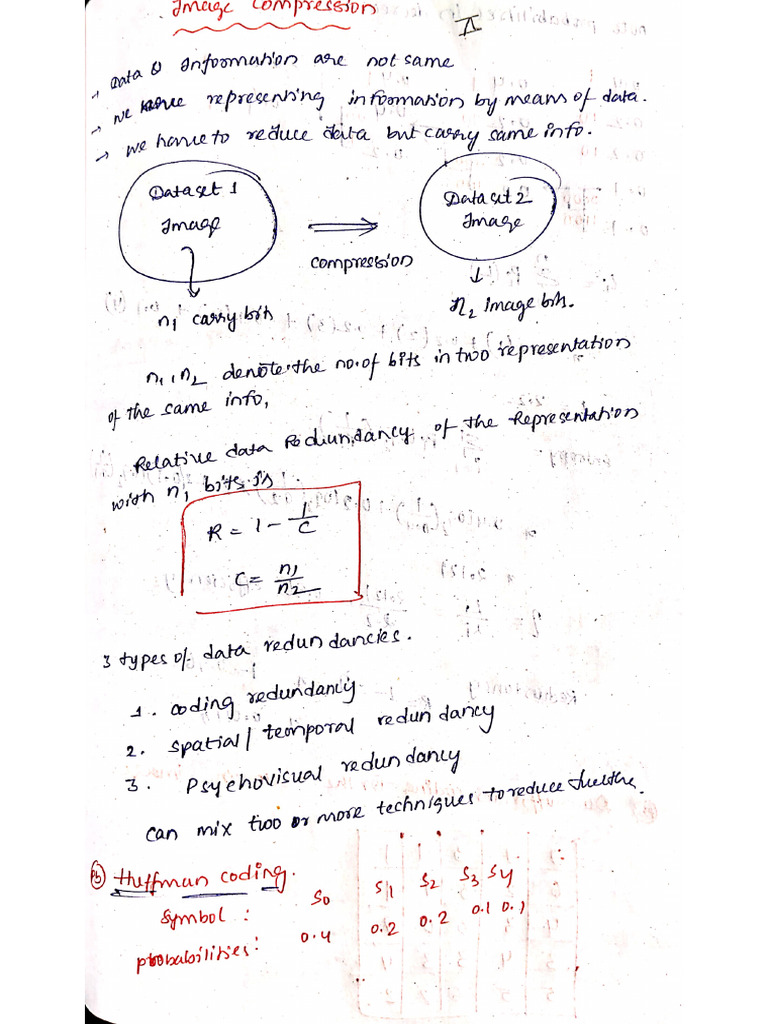 Image Compression
II
→ Data & Information are not same
→ we are representing information by means of data.
→ we have to reduce data but carry same info.
Dataset 1
Image
⇒
compression
Data set 2
Image
n1 carry bits
n2 image bits.
n1, n2 denote the no. of bits in two representation
of the same info,
Relative data Redundancy of the Representation
with n1 bits is :
R = 1 - 1/C
C = n1/n2
3 types of data redundancies.
1. coding redundancy.
2. Spatial / temporal redundancy
3. Psychovisual redundancy
can mix two or more techniques to reduce further.
Pb Huffman coding.
symbol : S0 S1 S2 S3 S4
probabilities: 0.4 0.2 0.2 0.1 0.1